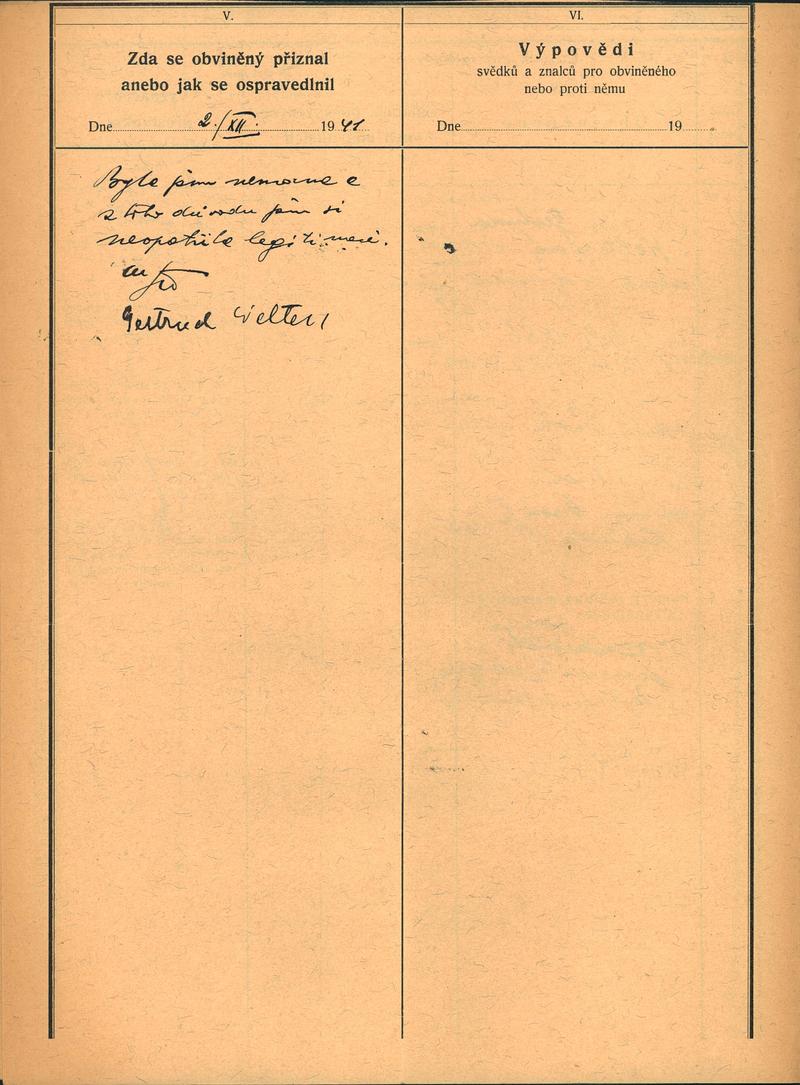 V.
Zda se obviněný přiznal
anebo jak se ospravedlnil
Dne 2./XII. 1941
Byla jsem nemocna a
z toho důvodu jsem si
neopatřila legitimaci.
Gertrud
VI.
Výpovědi
svědků a znalců pro obviněného
nebo proti němu
Dne 19